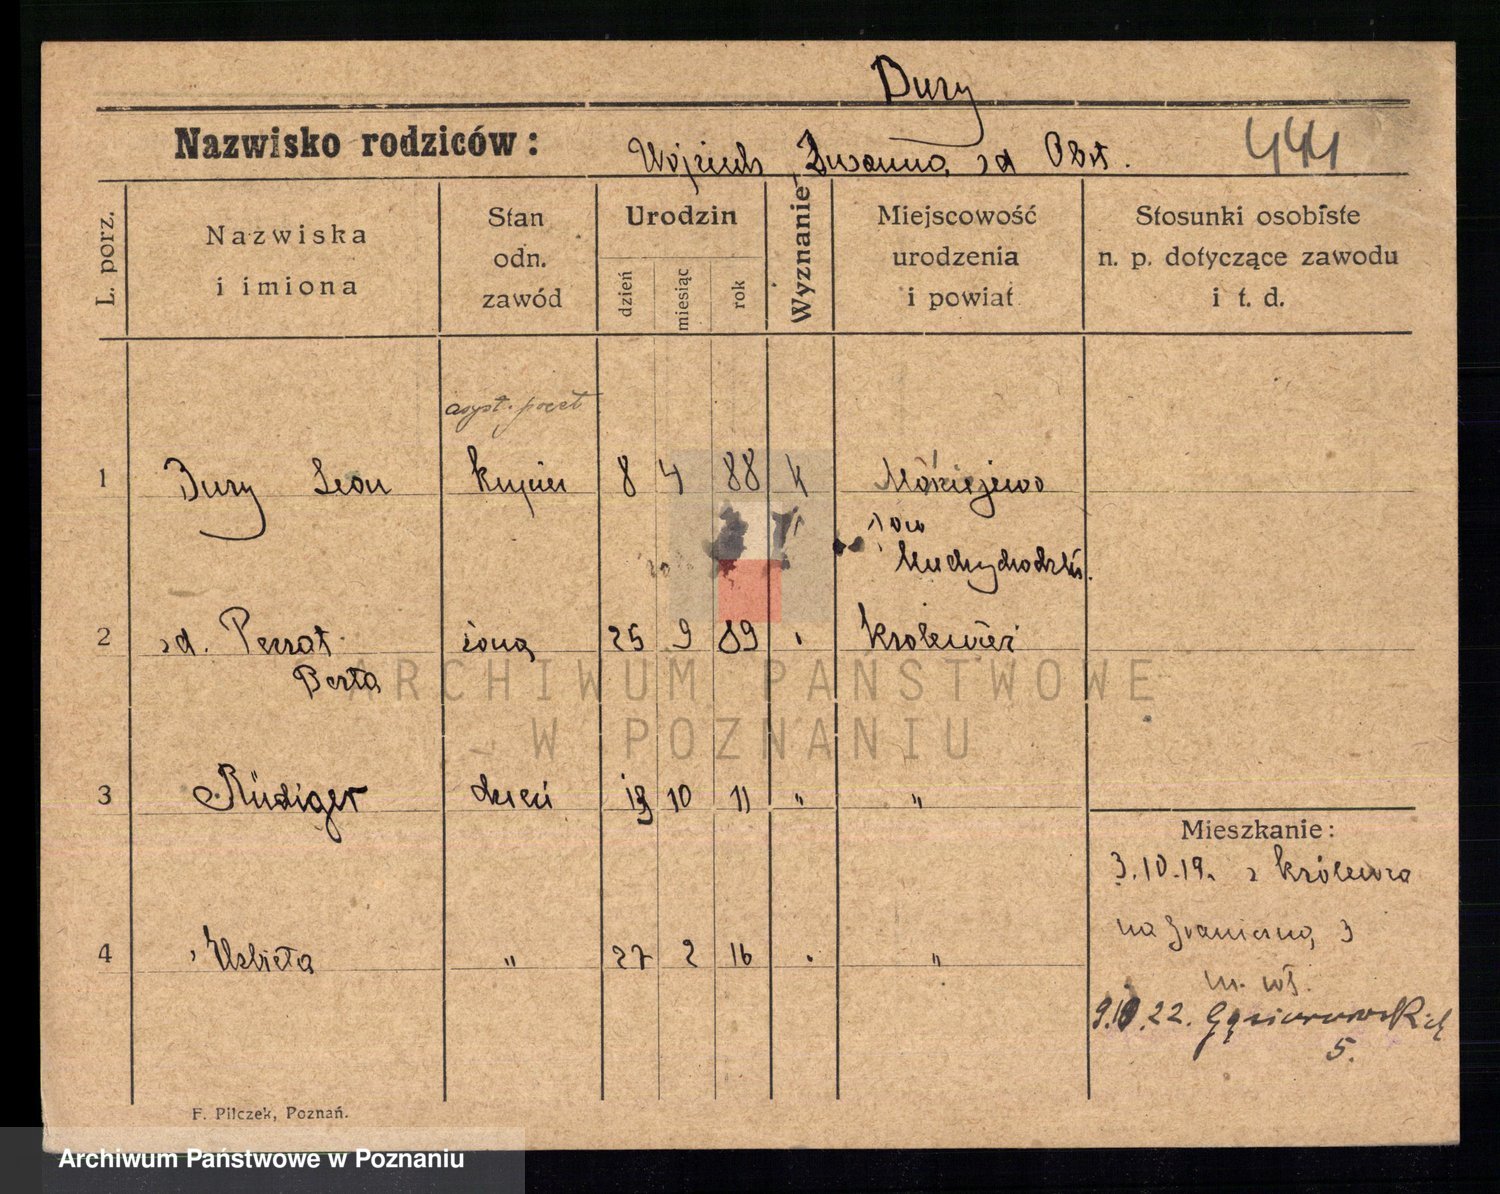 Bury
Nazwisko rodziców: Wojciech Zuzanna zd Obst.
444
L. porz.
Nazwiska i imiona
Stan odn. zawód
Urodzin
dzień miesiąc rok
Wyznanie
Miejscowość urodzenia i powiat
Stosunki osobiste n. p. dotyczące zawodu i t. d.
asyst. poczt
1 Bury Leon kupiec 8 4 88 k
pow
2 zd. Perrat żona 25 9 89 " Krolewiec
Berta
3 Rüdiger dzieci 10 11 " "
4 Elzbieta " 27 2 16 " "
Mieszkanie:
3.10.19. z Królewca
na Graniczną 3
m. wł.
9.10.22. Gąsiorowskich
5.
F. Pilczek, Poznań.
ARCHIWUM PAŃSTWOWE
W POZNANIU
Archiwum Państwowe w Poznaniu